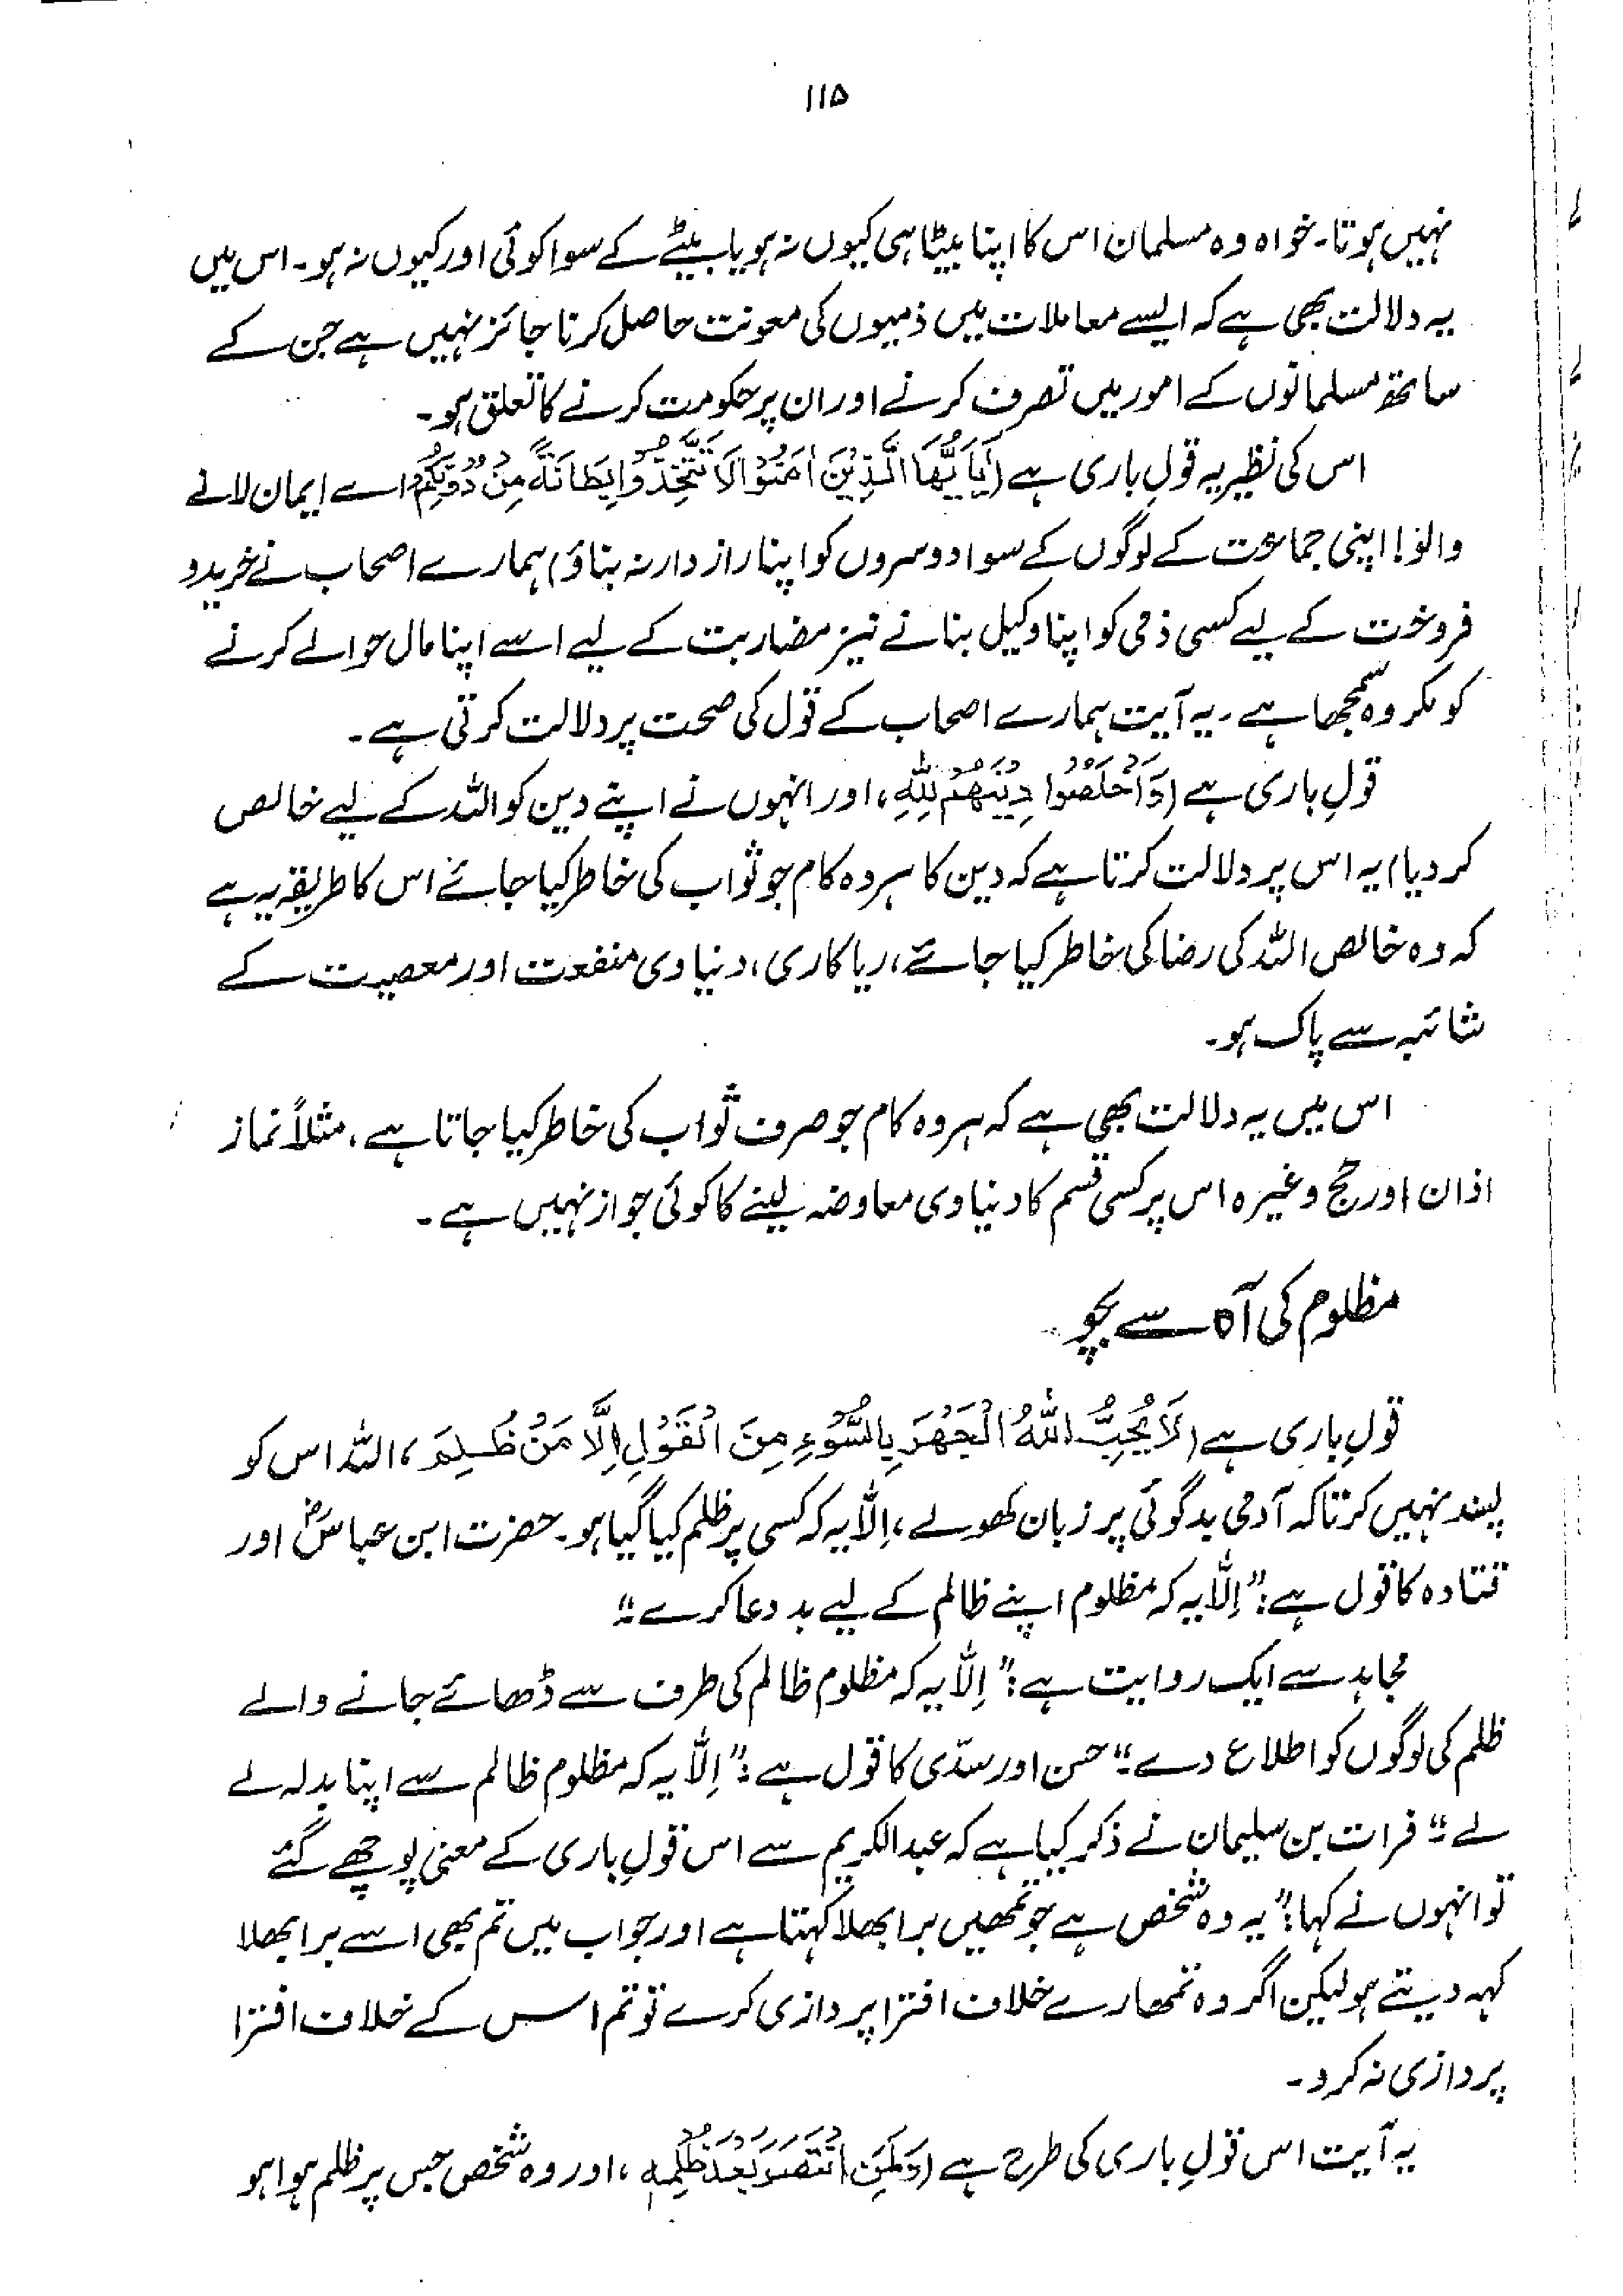 ۱۱۵
نہیں ہوتا۔ خواہ وہ مسلمان اس کا اپنا بیٹا ہی کیوں نہ ہو یا بیٹے کے سوا کوئی اور کیوں نہ ہو۔ اس میں
یہ دلالت بھی ہے کہ ایسے معاملات میں ذمیوں کی معونت حاصل کرنا جائز نہیں ہے جن کے
ساتھ مسلمانوں کے امور میں تصرف کرنے اور ان پر حکومت کرنے کا تعلق ہو۔
اس کی نظیر یہ قولِ باری ہے (يَا أَيُّهَا الَّذِيْنَ اٰمَنُوْا لَا تَتَّخِذُوْا بِطَانَةً مِنْ دُوْنِكُمْ، اے ایمان لانے
والو! اپنی جماعت کے لوگوں کے سوا دوسروں کو اپنا راز دار نہ بناؤ) ہمارے اصحاب نے خرید و
فروخت کے لیے کسی ذمی کو اپنا وکیل بنانے نیز مضاربت کے لیے اسے اپنا مال حوالے کرنے
کو مکروہ سمجھا ہے۔ یہ آیت ہمارے اصحاب کے قول کی صحت پر دلالت کرتی ہے۔
قولِ باری ہے (وَاَخْلَصُوْا دِيْنَهُمْ لِلّٰهِ، اور انہوں نے اپنے دین کو اللہ کے لیے خالص
کر دیا) یہ اس پر دلالت کرتا ہے کہ دین کا ہر وہ کام جو ثواب کی خاطر کیا جائے اس کا طریقہ یہ ہے
کہ وہ خالص اللہ کی رضا کی خاطر کیا جائے، ریا کاری، دنیاوی منفعت اور معصیت کے
شائبہ سے پاک ہو۔
اس میں یہ دلالت بھی ہے کہ ہر وہ کام جو صرف ثواب کی خاطر کیا جاتا ہے، مثلاً نماز
اذان اور حج وغیرہ اس پر کسی قسم کا دنیاوی معاوضہ لینے کا کوئی جواز نہیں ہے۔
مظلوم کی آہ سے بچو
قولِ باری ہے (لَا يُحِبُّ اللّٰهُ الْجَهْرَ بِالسُّوْءِ مِنَ الْقَوْلِ اِلَّا مَنْ ظُلِمَ، اللہ اس کو
پسند نہیں کرتا کہ آدمی بدگوئی پر زبان کھولے، اِلّا یہ کہ کسی پر ظلم کیا گیا ہو۔ حضرت ابن عباسؓ اور
قتادہ کا قول ہے: "اِلّا یہ کہ مظلوم اپنے ظالم کے لیے بد دعا کرے"
مجاہد سے ایک روایت ہے: "اِلّا یہ کہ مظلوم ظالم کی طرف سے ڈھائے جانے والے
ظلم کی لوگوں کو اطلاع دے" حسن اور سدّی کا قول ہے: "اِلّا یہ کہ مظلوم ظالم سے اپنا بدلہ لے
لے" فرات بن سلیمان نے ذکر کیا ہے کہ عبدالکریم سے اس قولِ باری کے معنی پوچھے گئے
تو انہوں نے کہا: "یہ وہ شخص ہے جو تمھیں برا بھلا کہتا ہے اور جواب میں تم بھی اسے برا بھلا
کہہ دیتے ہو لیکن اگر وہ تمھارے خلاف افترا پردازی کرے تو تم اس کے خلاف افترا
پردازی نہ کرو۔
یہ آیت اس قولِ باری کی طرح ہے (وَلَمَنِ انْتَصَرَ بَعْدَ ظُلْمِهٖ، اور وہ شخص جس پر ظلم ہوا ہو